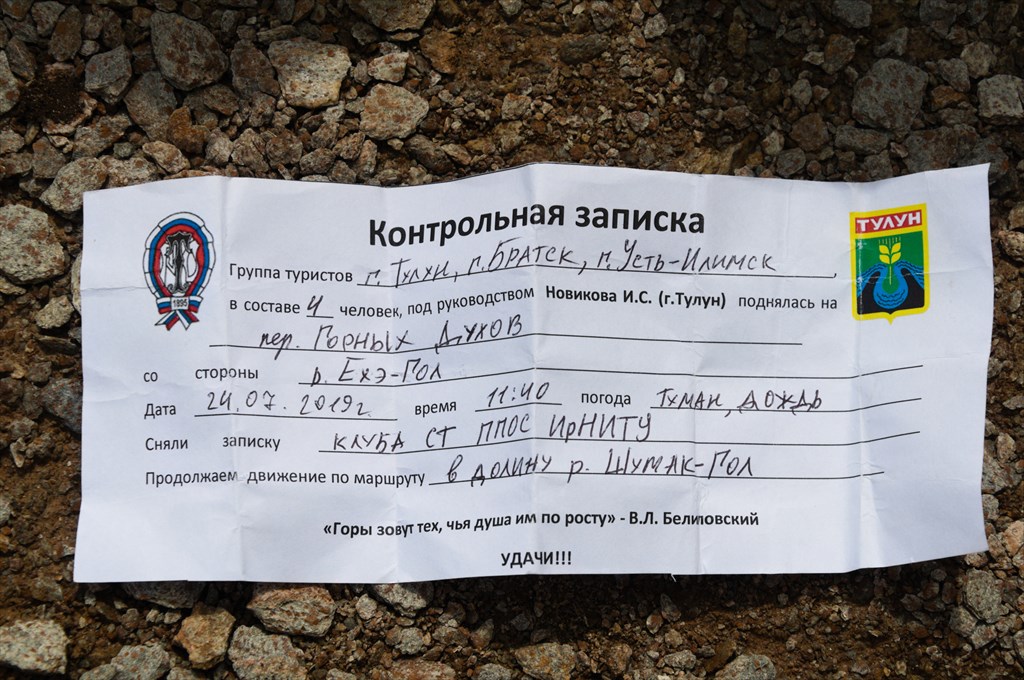 Контрольная записка
ТУЛУН
Группа туристов г. Тулун, г. Братск, г. Усть-Илимск,
в составе 4 человек, под руководством Новикова И.С. (г.Тулун) поднялась на
1895
пер. Горных Духов
со стороны р. Ехэ-Гол
Дата 24.07.2019г. время 11:40 погода Туман, дождь
Сняли записку клуба СТ ППОС ИрНИТУ
Продолжаем движение по маршруту в долину р. Шумак-Гол
«Горы зовут тех, чья душа им по росту» - В.Л. Белиловский
УДАЧИ!!!